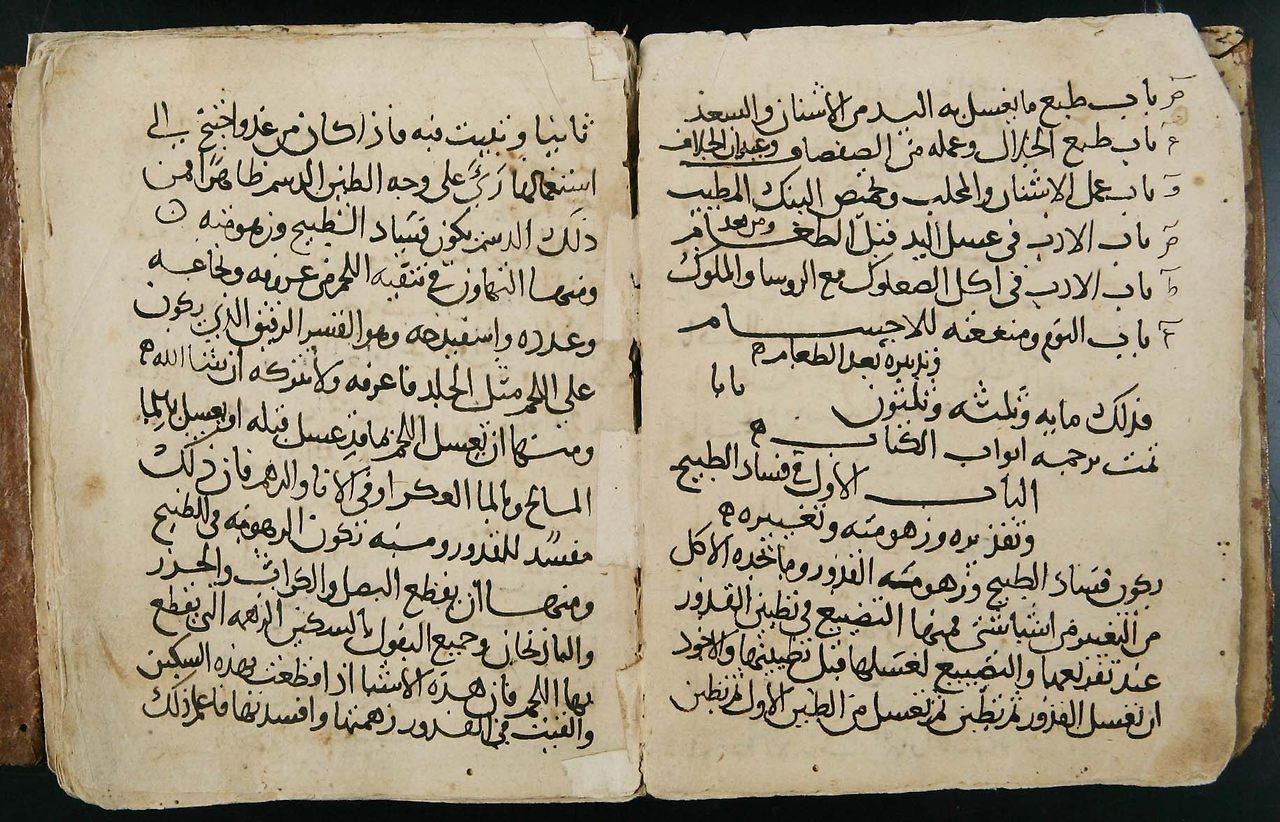 باب طبع ما يغسل به اليد من الاشنان والسعد
باب طبع الخلال وعمله من الصفصاف وعيدان الخلاف
باب عمل الاشنان والمحلب وتحميص البنك المطيب
باب الادب فى غسل اليد قبل الطعام ومن بعد
باب الادب فى اكل الصعلوك مع الروسا والملوك
باب النوم ومنفعته للاجسام
وتدبيره بعد الطعام
فذلك مايه وثلثه وثلثون بابا
تمت ترجمه ابواب الكتاب
الباب الاول فى فساد الطبيخ
وزهومته وتغييره
يكون فساد الطبيخ وزهومته القدور وما يجده الاكل
من التغيير من اشيا شتى فمنها التضييع فى تطيين القدور
عند والتضييع لغسلها قبل والاجود
ان تغسل القدور ثم تطين ثم تغسل من الطين الاول ثم تطين
ثانيا وتبيت فيه فاذا كان من غد واحتيج الى
استعمالها رئى على وجه الطين الدسم ظاهرا فمن
ذلك الدسم يكون فساد الطبيخ وزهومته
ومنها التهاون فى تنقيه اللحم من عروقه ونخاعه
وغدده واسفيدجه وهو القشر الرقيق الذى يكون
على اللحم مثل الجلد فاعرفه ولا تتركه ان شا الله
ومنها ان يغسل اللحم بما قد غسل قبله او يغسل بالما
المالح وبالما العكر او فى الانا والدهم فان ذلك
مفسد للقدور ومنه تكون الزهومه فى الطبيخ
ومنها ان يقطع البصل والكراث والجزر
والباذنجان وجميع البقول بالسكين الزهمه التى يقطع
بها اللحم فان هذه الاشيا اذا قطعت بهذه السكين
والقيت فى القدور زهمتها وافسدتها فاعلم ذلك